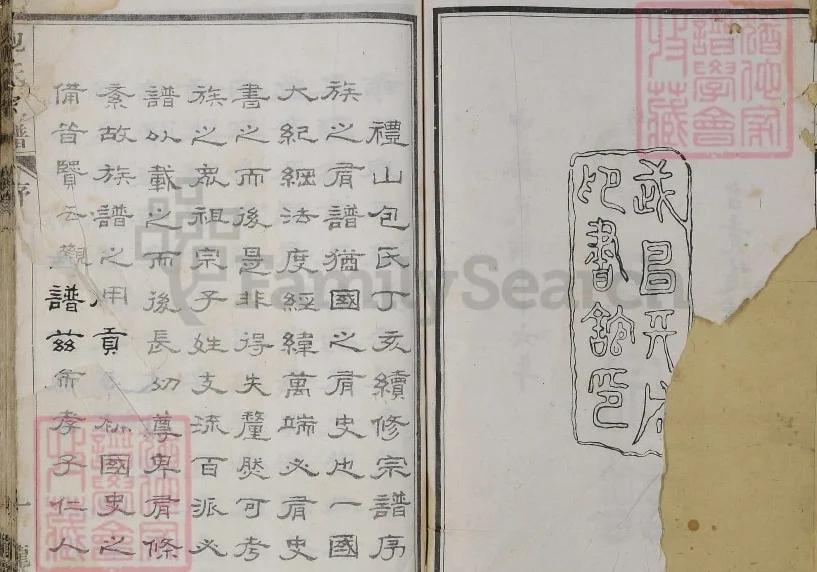 武昌
印書館印
禮山包氏丁亥續修宗譜序
族之有譜猶國之有史也一國
大紀綱法度經緯萬端必有史
書之而後是非得失釐然可考
族之衆祖宗子姓支流百派必
譜以載之而後長幼尊卑有條
紊故族譜之用貢似國史之
備昔賢云觀譜茲孝子仁人
包氏宗譜
序
一
譜學會
收藏
譜學會
收藏
FamilySearch